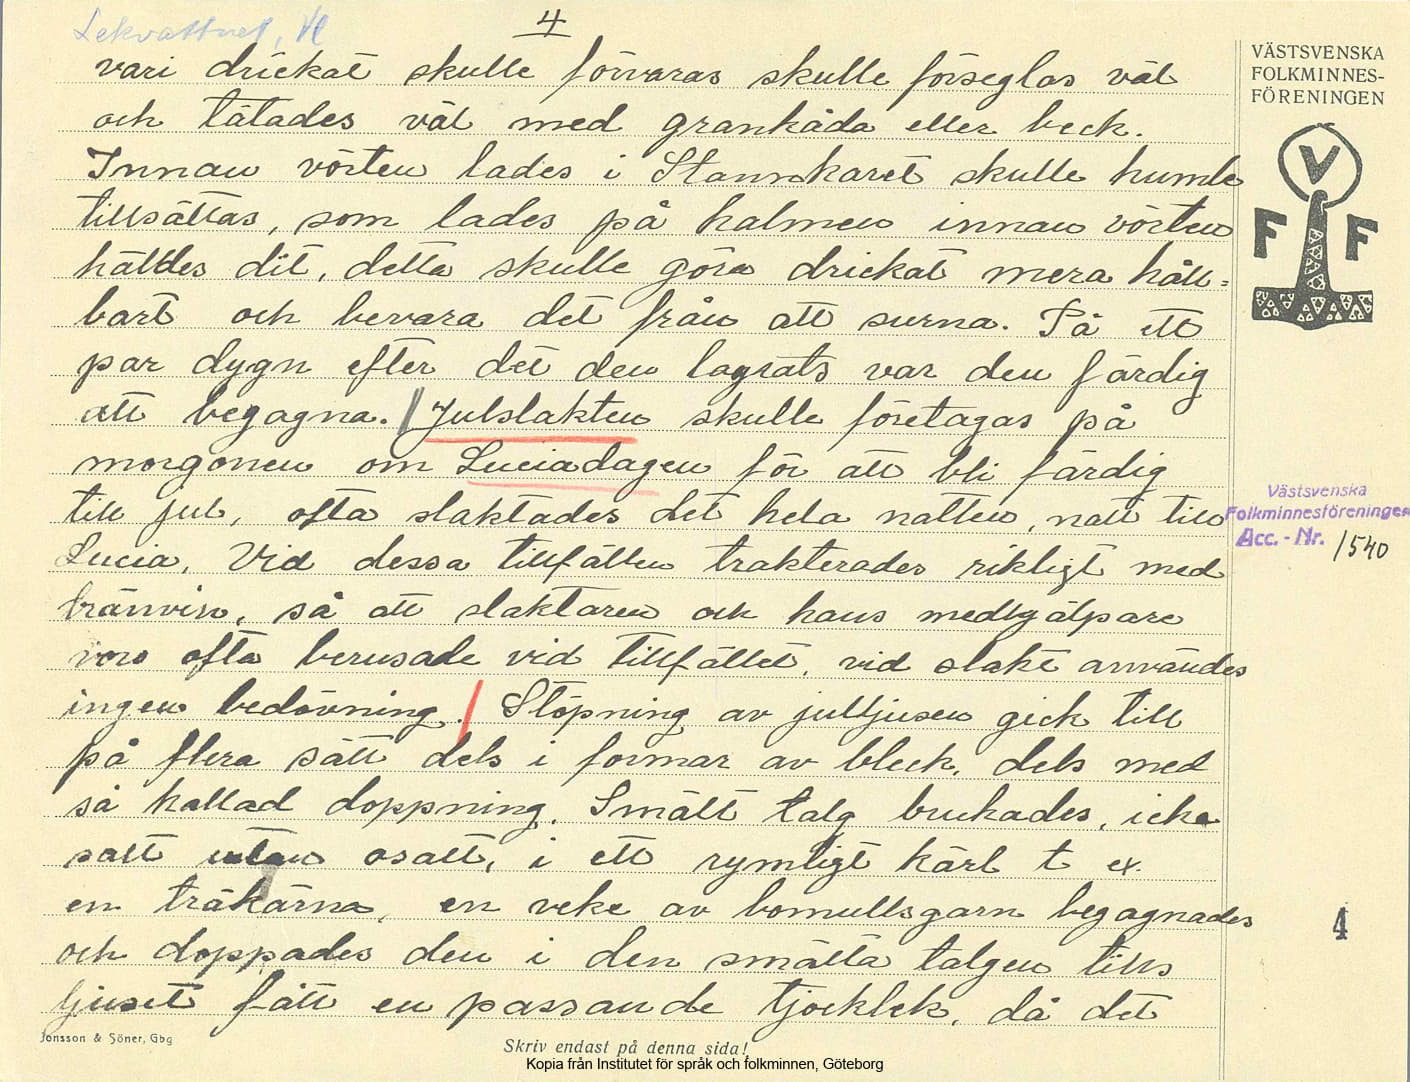 Lekvattnet, Vl
4
vari drickat skulle förvaras skulle förseglas väl
och tätades väl med grankåda eller beck.
Innan vörten lades i Stannkaret skulle humle
tillsättas, som lades på halmen innan vörten
hälldes dit, detta skulle göra drickat mera håll=
bart och bevara det från att surna. På ett
par dygn efter det den lagrats var den färdig
att begagna. Julslakten skulle företagas på
morgonen om Luciadagen för att bli färdig
till jul, ofta slaktades det hela natten, natt till
Lucia. Vid dessa tillfällen trakterades rikligt med
bränvin, så att slaktaren och hans medhjälpare
voro ofta berusade vid tillfället, vid slakt användes
ingen bedövning. Stöpning av julljusen gick till
på flera sätt dels i formar av bleck, dels med
så kallad doppning. Smält talg brukades, icke
salt utan osalt, i ett rymligt kärl t ex.
en träkärna, en veke av bomullsgarn begagnades
och doppades den i den smälta talgen tills
ljuset fått en passande tjocklek, då det
VÄSTSVENSKA
FOLKMINNES-
FÖRENINGEN
V
F F
Västsvenska
Folkminnesföreningen
Acc. - Nr. 1540
4
Jonsson & Söner, Gbg
Skriv endast på denna sida!
Kopia från Institutet för språk och folkminnen, Göteborg